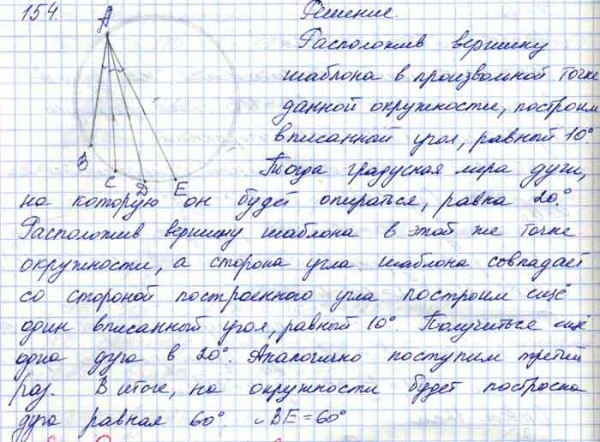 154.
A
Решение.
Расположив вершину
шаблона в произвольной точке
данной окружности, построим
вписанной угол, равный 10°
Тогда градусная мера дуги,
B
C
D
E
на которую он будет опираться, равна 20.°
Расположив вершину шаблона в этой же точке
окружности, а сторона угла шаблона совпадает
со стороной построенного угла построим ещё
один вписанный угол, равный 10°. Получиться ещё
одна дуга в 20°. Аналогично поступим третий
раз. В итоге, на окружности будет построена
дуга равная 60°. ◡BE = 60°